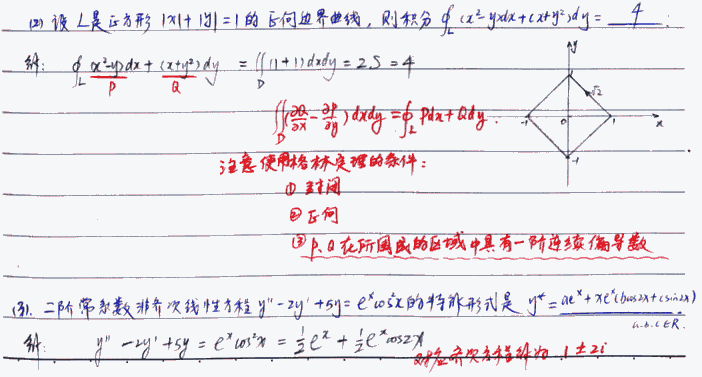 (2) 设 L 是正方形 |x|+|y|=1 的正向边界曲线, 则积分 ∮_L (x²-y)dx+(x+y²)dy = 4 .
解: ∮_L (x²-y)dx + (x+y²)dy = ∬_D (1+1)dxdy = 2S = 4
P Q
y
√2
-1 0 1 x
-1
∬_D (∂Q/∂x - ∂P/∂y)dxdy = ∮_L Pdx+Qdy .
注意使用格林定理的条件:
① 封闭
② 正向
③ P, Q 在所围成的区域中具有一阶连续偏导数
(3). 二阶常系数非齐次线性方程 y''-2y'+5y=eˣcos²x 的特解形式是 y*= aeˣ+xeˣ(bcos2x+csin2x)
a.b.c∈R.
解: y''-2y'+5y = eˣcos²x = ½eˣ + ½eˣcos2x
对应齐次方程解为 1±2i